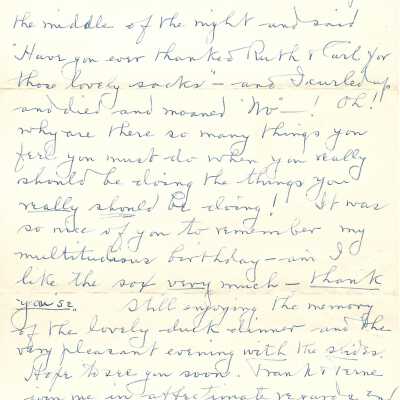 the middle of the night and said
"Have you ever thanked Ruth & Carl for
those lovely socks" – and I curled up
and died and moaned "No" – ! Oh!
why are there so many things you
feel you must do when you really
should be doing the things you
really should be doing! It was
so nice of you to remember my
multitudinous birthday – and I
like the sox very much – thank
you se. Still enjoying the memory
of the lovely duck dinner and the
very pleasant evening with the slides.
Hope to see you soon. Frank &
join me in affectionate regards and